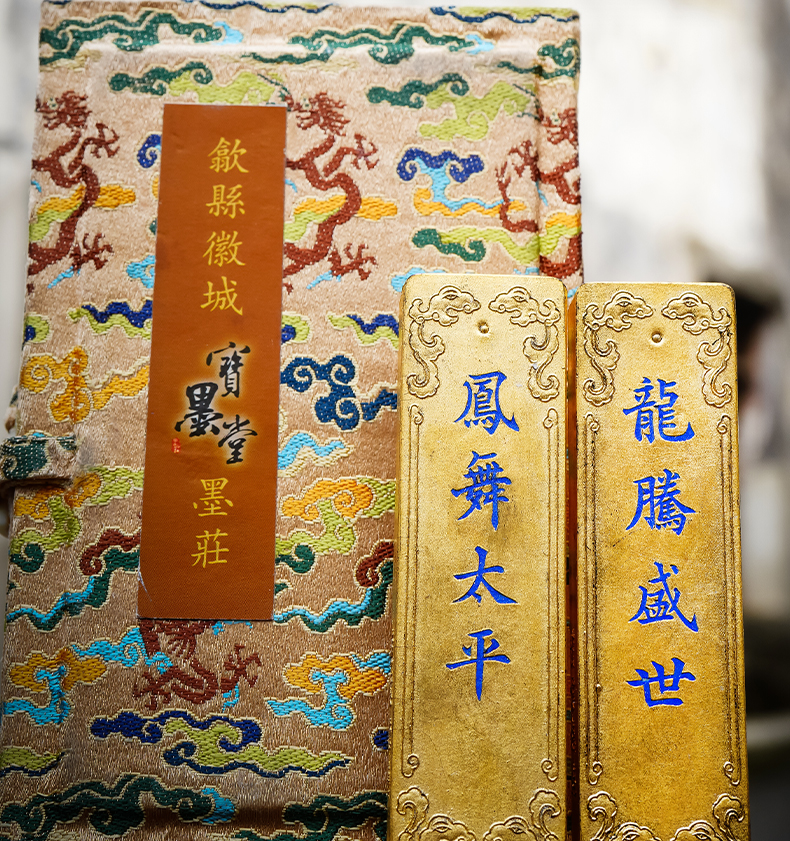 歙縣徽城
寶墨堂
墨莊
龍騰盛世
鳳舞太平